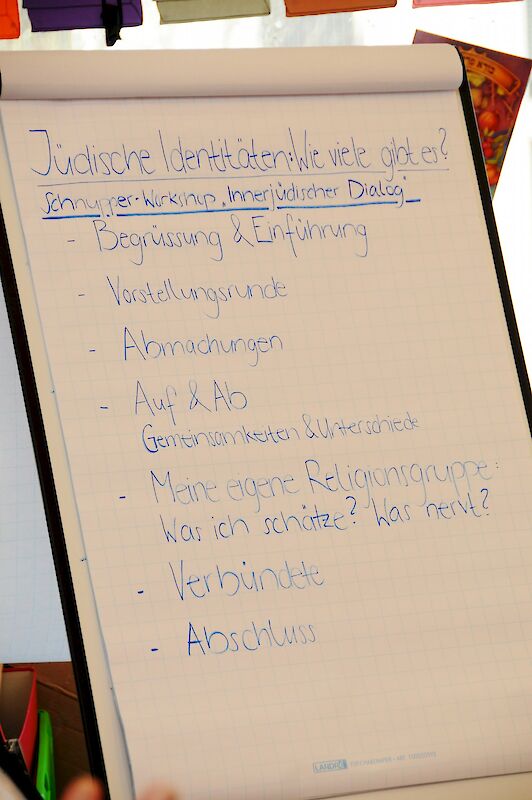 Jüdische Identitäten: Wie viele gibt es?
Schnupper-Workshop „Innerjüdischer Dialog"
- Begrüssung & Einführung
- Vorstellungsrunde
- Abmachungen
- Auf & Ab
Gemeinsamkeiten & Unterschiede
- Meine eigene Religionsgruppe:
Was ich schätze? Was nervt?
- Verbündete
- Abschluss
LANDRÉ